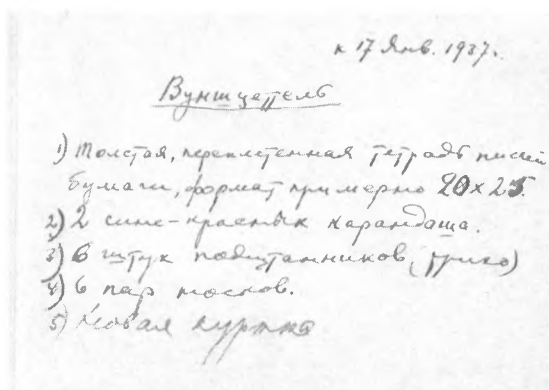 к 17 Янв. 1937.
Вуншцеттель
1) Толстая, переплетенная тетрадь писчей
бумаги, формат примерно 20 x 25.
2) 2 сине-красных карандаша.
3) 6 штук подштанников (трико)
4) 6 пар носков.
5) Новая куртка